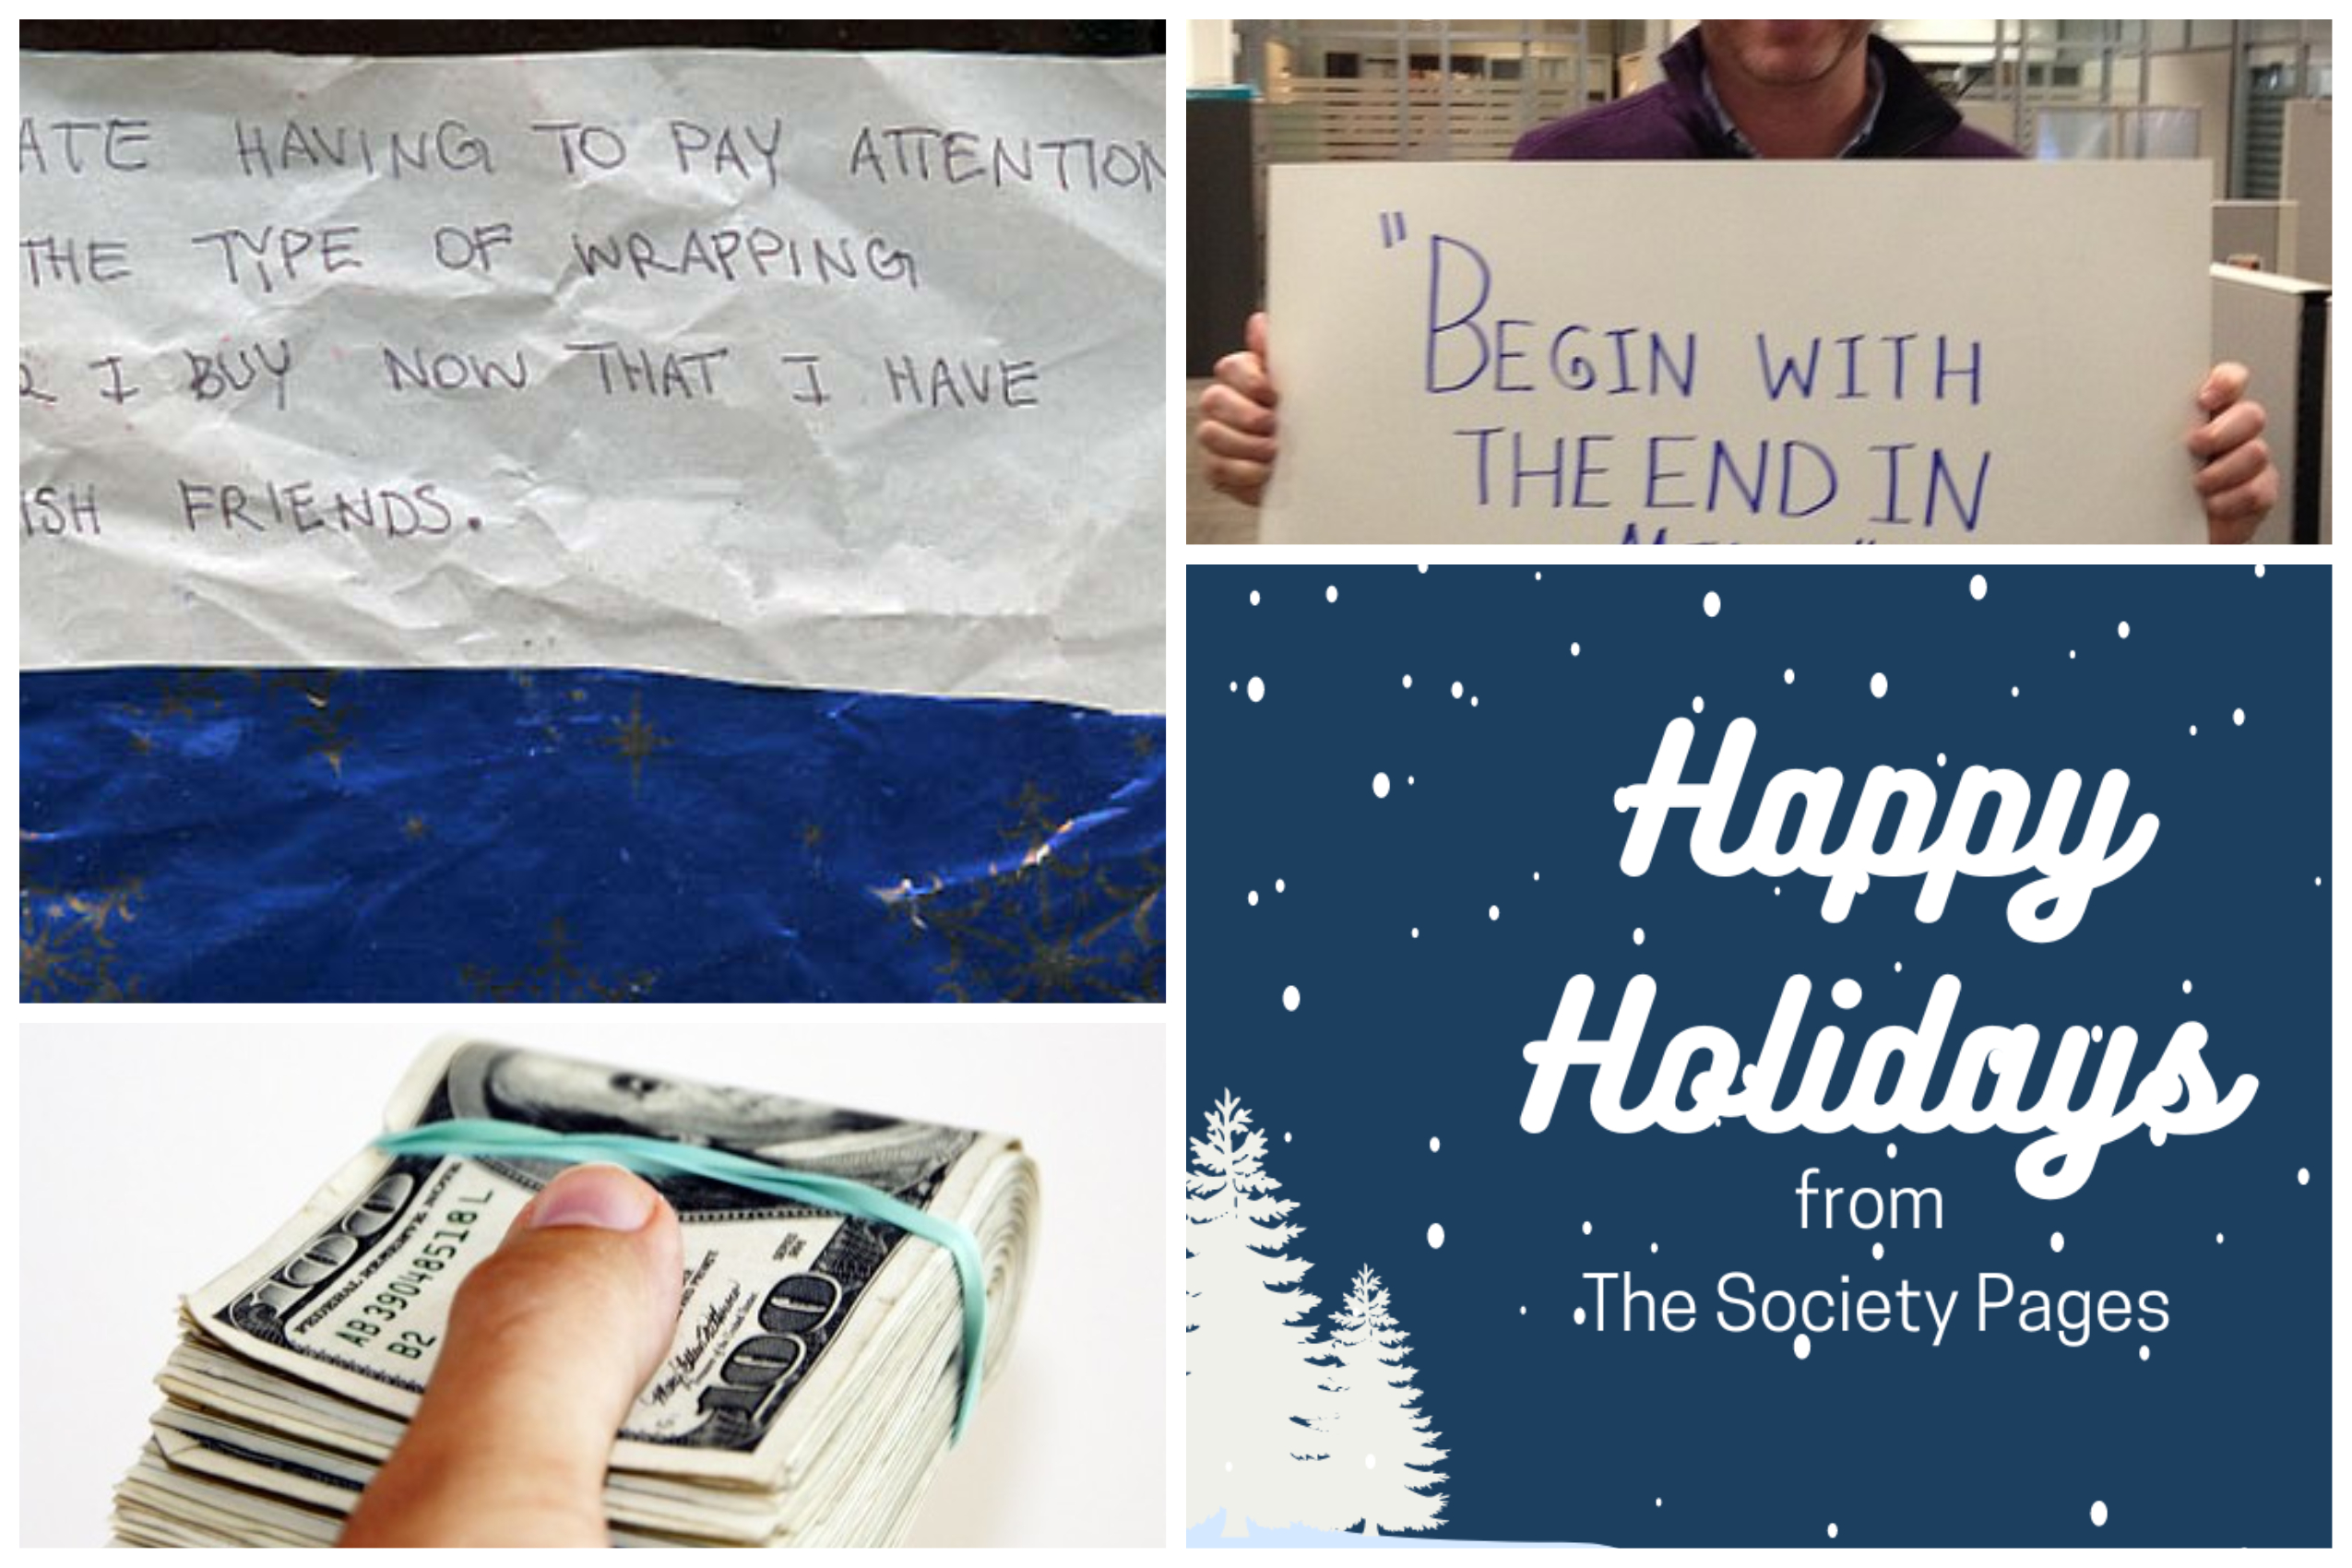 ATE HAVING TO PAY ATTENTION
THE TYPE OF WRAPPING
I BUY NOW THAT I HAVE
ISH FRIENDS.
"BEGIN WITH
THE END IN
100
FEDERAL RESERVE NOTE
AB39048518L
B2
SERIES
100
Happy
Holidays
from
The Society Pages